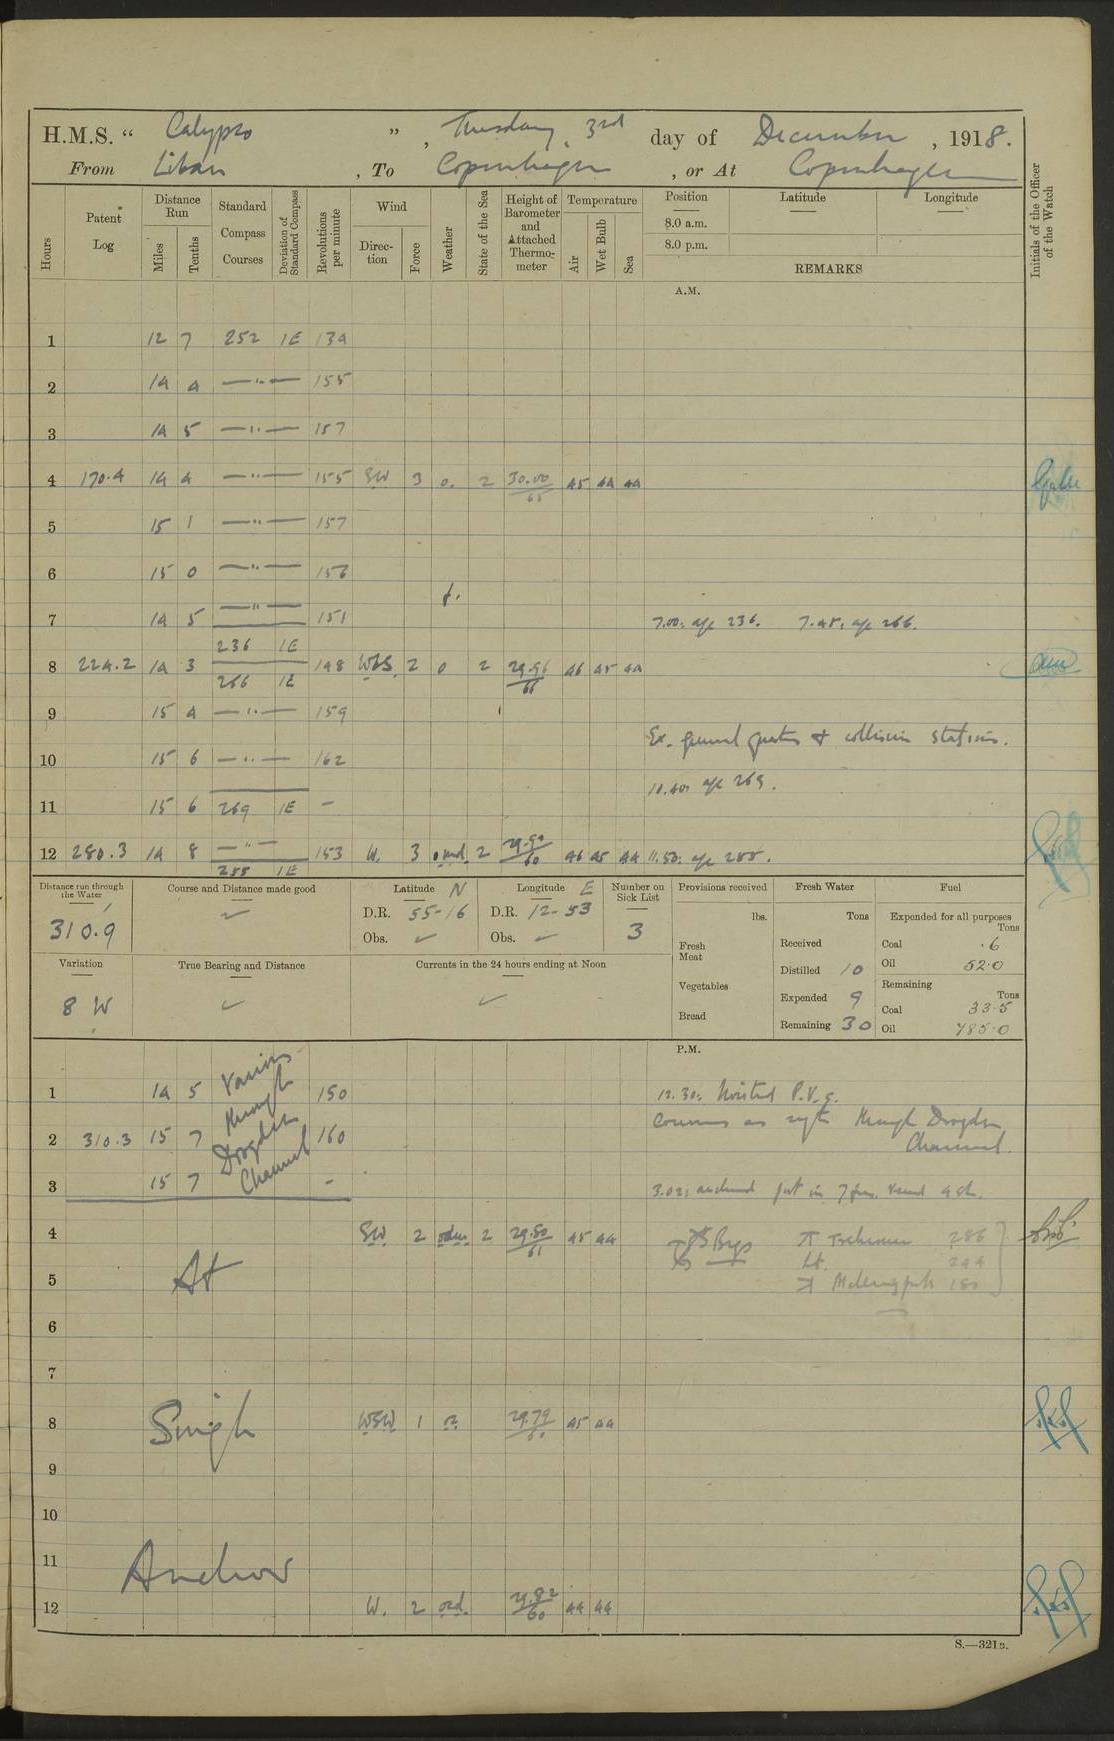 H.M.S. “ Calypso ”, Tuesday, 3rd day of December, 1918.
From Libau, To Copenhagen, or At Copenhagen
Hours
Patent Log
Distance Run
Miles
Tenths
Standard Compass Courses
Deviation of Standard Compass
Revolutions per minute
Wind
Direction
Force
Weather
State of the Sea
Height of Barometer and Attached Thermometer
Temperature
Air
Wet Bulb
Sea
Position
8.0 a.m.
8.0 p.m.
Latitude
Longitude
REMARKS
Initials of the Officer of the Watch
A.M.
1 12 7 252 1E 134
2 14 4 —"— 155
3 14 5 —"— 157
4 170.4 14 4 —"— 155 SW 3 o. 2 30.00/65 45 44 44
5 15 1 —"— 157
6 15 0 —"— 156
f.
7 14 5 —"— 151 7.00: a/c 236. 7.45: a/c 266.
236 1E
8 224.2 14 3 148 WbS 2 o 2 29.96/66 46 45 44
266 1E
9 15 4 —"— 159
Ex. general quarters & collision stations.
10 15 6 —"— 162
10.40: a/c 269.
11 15 6 269 1E -
12 280.3 14 8 —"— 153 W. 3 2 46 45 44 11.50: a/c 288.
288 1E
Distance run through the Water
310.9
Course and Distance made good
Latitude N
D.R. 55-16
Obs.
Longitude E
D.R. 12-53
Obs.
Number on Sick List
3
Provisions received
lbs.
Fresh Meat
Vegetables
Bread
Fresh Water
Tons
Received
Distilled 10
Expended 9
Remaining 30
Fuel
Expended for all purposes
Tons
Coal .6
Oil 52.0
Remaining
Tons
Coal 33.5
Oil 785.0
Variation
8 W
True Bearing and Distance
Currents in the 24 hours ending at Noon
P.M.
Various through Drogden Channel
1 14 5 150 12.30: hoisted P.V.s.
Courses as req'te through Drogden Channel.
2 310.3 15 7 160
3 15 7 - 3.02: anchored port in 7 fms. veered 4 sh.
4 SW 2 2 29.80/61 45 44
Brgs 286
Lt. 244
180
5 At
6
7
8 Single WSW 1 29.79/60 45 44
9
10
11 Anchor
12 W. 2 29.82/60 44 44
S.—321B.